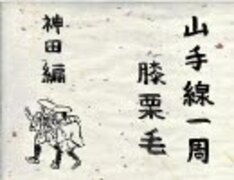 山手線一周
膝栗毛
神田編